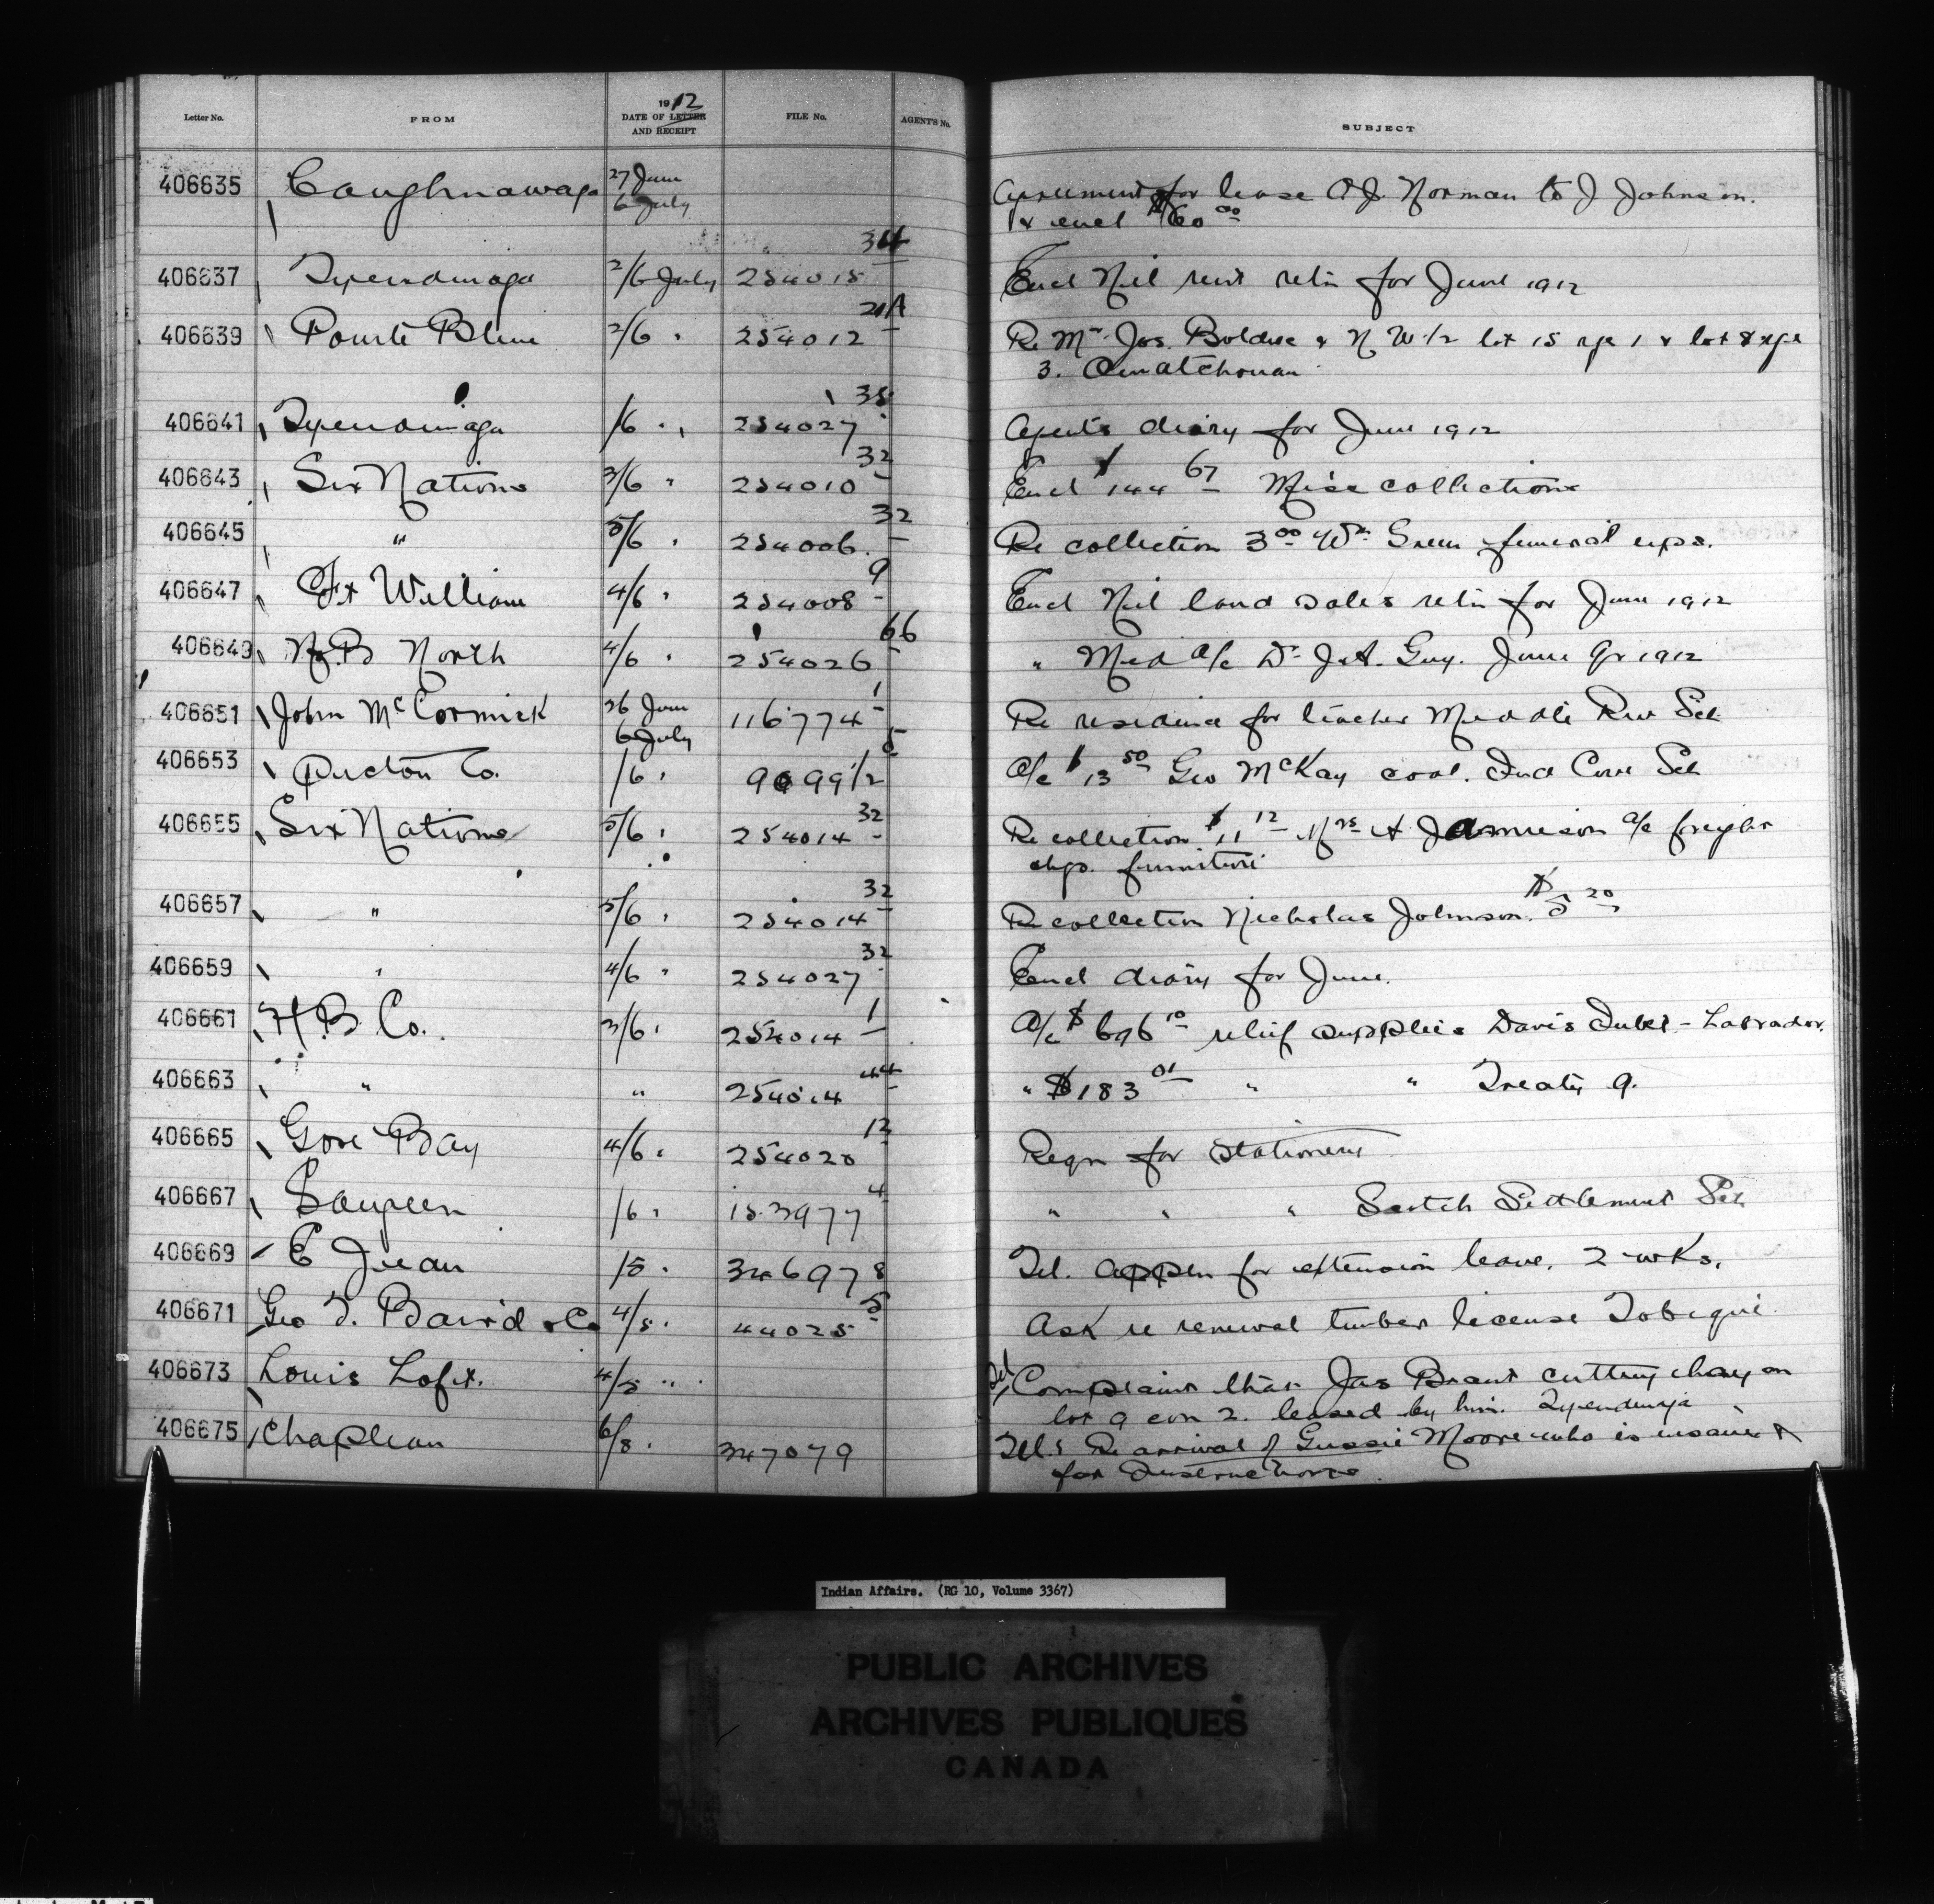 Letter No. FROM 1912 DATE OF LETTER AND RECEIPT FILE No. AGENT'S No. SUBJECT
406635 Caughnawaga 27 June 6 July Agreement for lease A J. Norman to J Johnson.
& encl $60 00
406637 Tyendinaga 2/6 July 254015 34 Encl Nil rent retn for June 1912
406639 Pointe Bleue 2/6 " 254012 21A Re Mr Jos. Boldue & N W 1/2 lot 15 rge 1 & lot 8 rge
3. Ouiatchouan
406641 Tyendinaga /6 " 254027 35 Agent's diary for June 1912
406643 Six Nations 3/6 " 254010 32 Encl $144 67 Misc collections
406645 " 5/6 " 254006 32 Re collection 3 00 Wm Green funeral exps.
406647 Ft William 4/6 " 254008 9 Encl Nil land sales retn for June 1912
406649 N.B North 4/6 " 254026 66 " Med a/c Dr J.A. Guy. June Qr 1912
406651 John McCormick 26 June 6 July 116774 1 Re residence for teacher Middle River Sch
406653 Pictou Co. /6 " 9099 1/2 5 A/c $13 50 Geo McKay coal. Ind Cove Sch
406655 Six Nations 5/6 " 254014 32 Re collection $11 12 Mrs A Jamieson a/c freight
chgs. furniture
406657 " 5/6 " 254014 32 Re collection Nicholas Johnson. $5 20
406659 " 4/6 " 254027 32 Encl diary for June.
406661 H.B. Co. 3/6 " 254014 1 A/c $696 10 relief supplies Davis Inlet - Labrador.
406663 " " 254014 44 " $183 01 " " Treaty 9.
406665 Gore Bay 4/6 " 254020 12 Reqn for stationery
406667 Saugeen /6 " 153977 4 " " " Scotch Settlement Sch
406669 E Jean /5 " 346978 Tel. appln for extension leave. 2 wks.
406671 Geo T. Baird & Co 4/5 " 44025 5 Ask re renewal timber license Tobique
406673 Louis Loft. 4/5 " Tel Complaint that Jas Brant cutting hay on
lot 9 con 2. leased by him. Tyendinaga
406675 Chapleau 6/8 " 347079 Tel: Re arrival of Gussie Moore who is insane &
for Instructions.
Indian Affairs. (RG 10, Volume 3367)
PUBLIC ARCHIVES
ARCHIVES PUBLIQUES
CANADA